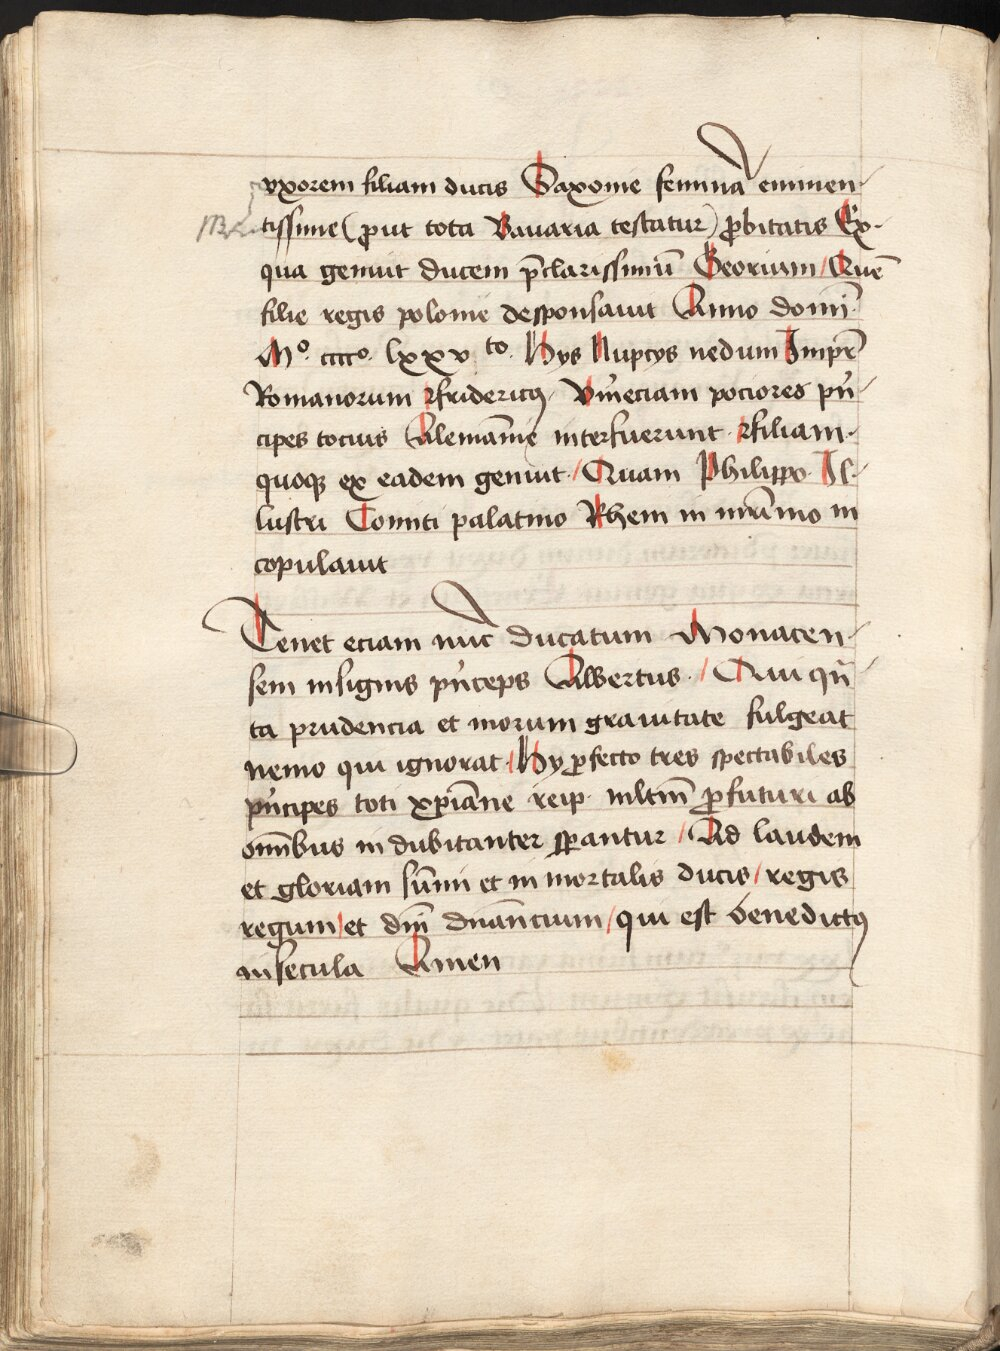 vxorem filiam ducis Saxonie feminā eminen-
tissime (ꝓut tota Bauaria testatur) ꝓbitatis Ex-
qua genuit ducem p̄clarissimū Georium / Quē
filie regis polonie desponsauit Anno domī
Mᵒ ccccᵒ lxxvᵗᵒ. Hys Nupcys nedum Impr̄
Romanorum ffridericꝰ Vm̄eciam pociores pn̄
cipes tocius Alemānie interfuerunt. ffiliam
quoqꝫ ex eadem genuit / Quam Philippo Il-
lustri Comiti palatino Rheni in mr̄imo in
copulauit
Tenet eciam nūc ducatum Monacen-
sem insignis pn̄ceps Albertus. / Qui qn̄
ta prudencia et morum grauitate fulgeat
nemo qui ignorat / Hy ꝓfecto tres spectabiles
pn̄cipes toti xp̄iane reip. mltm̄ ꝓfuturi ab
om̄ibus in dubitanter sꝑantur / Ad laudem
et gloriam sūmi et in mortalis ducis / regis
regum / et dn̄i dn̄ancium / qui est benedictꝰ
in secula Amen